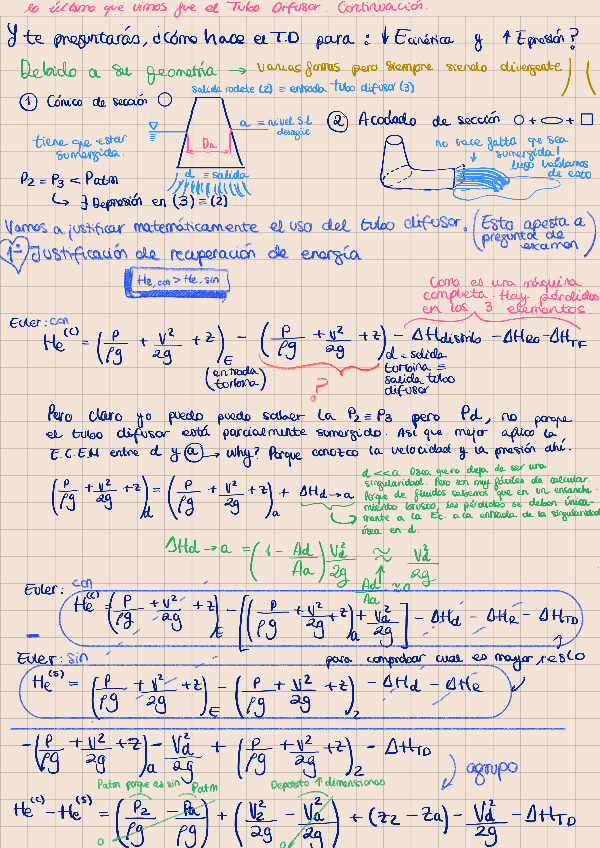 lo último que vimos fue el Tubo Difusor. Continuación.
Y te preguntarás, ¿cómo hace el T.D para: ↓ Ecinética y ↑ Epresión?
Debido a su geometría → varias formas pero siempre siendo divergente
salida rodete (2) = entrada tubo difusor (3)
① Cónico de sección ○
a = nivel S.L desagüe
② Acodado de sección ○ + ⬭ + □
tiene que estar sumergida.
Da
no hace falta que sea sumergida! luego hablamos de esto
d = salida
P2 = P3 < Patm
↳ ∃ Depresión en (3) = (2)
Vamos a justificar matemáticamente el uso del tubo difusor. (Esto apesta a pregunta de examen)
1º Justificación de recuperación de energía
He,con > He,sin
Como es una máquina completa. Hay pérdidas en los 3 elementos.
Euler: con
He^(c) = (P/ρg + v²/2g + z)_E - (P/ρg + v²/2g + z)_d - ΔHdistrib - ΔHRo - ΔHTF
(entrada turbina)
?
d = salida turbina = salida tubo difusor
Pero claro yo puedo puedo saber la P2 = P3 pero Pd, no porque
el tubo difusor está parcialmente sumergido. Así que mejor aplico la
E.C.E.M entre d y ⓐ → why? Porque conozco la velocidad y la presión ahí.
(P/ρg + v²/2g + z)_d = (P/ρg + v²/2g + z)_a + ΔHd→a
d << a Osea que no deja de ser una
singularidad. Pero son muy fáciles de calcular.
Porque de fluidos sabemos que en un ensanchamiento brusco, las pérdidas se deben únicamente a la Ec. a la entrada de la singularidad
osea en d.
ΔHd→a = (1 - Ad/Aa) Vd²/2g ≈ Vd²/2g
Ad/Aa ≈ 0
Euler: con
He^(c) = (P/ρg + v²/2g + z)_E - [(P/ρg + v²/2g + z)_a + Vd²/2g] - ΔHd - ΔHR - ΔHTD
Euler: sin
para comprobar cual es mayor, resto
He^(s) = (P/ρg + v²/2g + z)_E - (P/ρg + v²/2g + z)_2 - ΔHd - ΔHR
-(P/ρg + v²/2g + z)_a - Vd²/2g + (P/ρg + v²/2g + z)_2 - ΔHTD
agrupo
Patm porque es sin
Patm
Deposito ↑ dimensiones
He^(c) - He^(s) = (P2/ρg - Pa/ρg) + (V2²/2g - Va²/2g) + (z2 - za) - Vd²/2g - ΔHTD
0
0